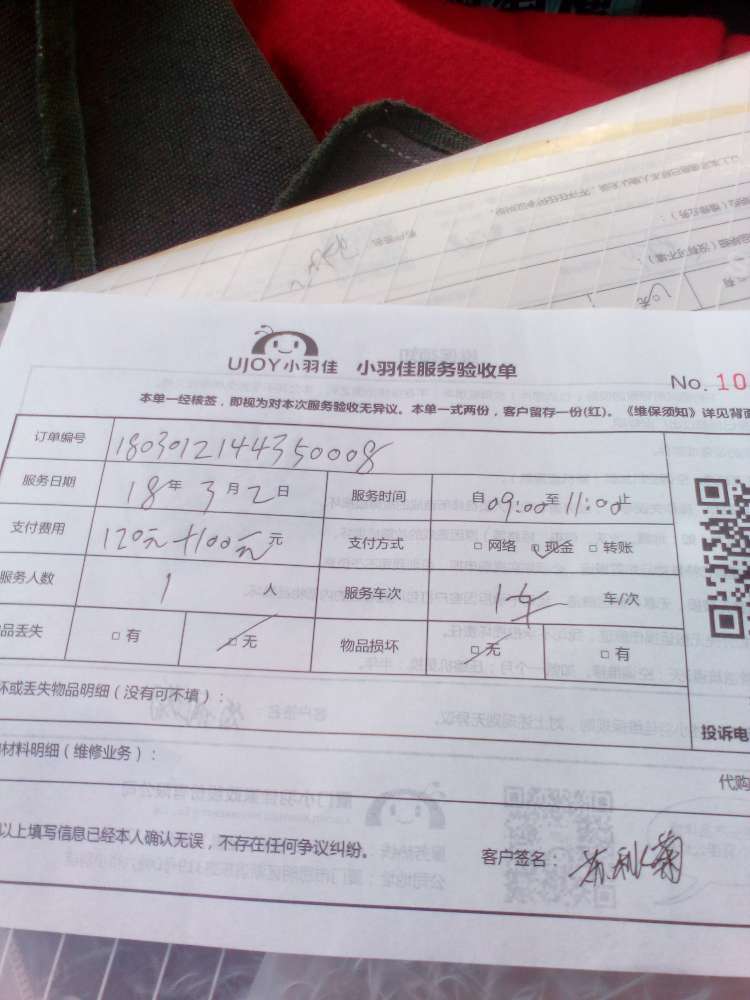 UJOY小羽佳 小羽佳服务验收单
No. 10
本单一经核签，即视为对本次服务验收无异议。本单一式两份，客户留存一份(红)。《维保须知》详见背面
订单编号 180301214435 0008
服务日期 18年 3月2日 服务时间 自09:00至11:00止
支付费用 120元+100元 元 支付方式 □网络 □现金 □转账
服务人数 1 人 服务车次 1车 车/次
品丢失 □有 □无 物品损坏 □无 □有
坏或丢失物品明细（没有可不填）：
投诉电
材料明细（维修业务）：
代购
以上填写信息已经本人确认无误，不存在任何争议纠纷。
客户签名：苏秋菊